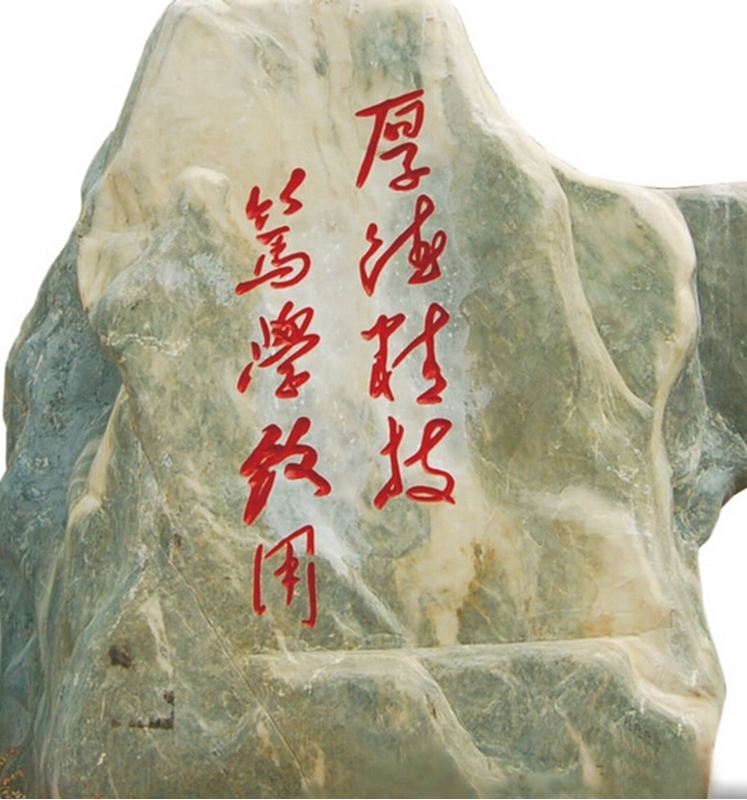 厚德精技
篤學致用